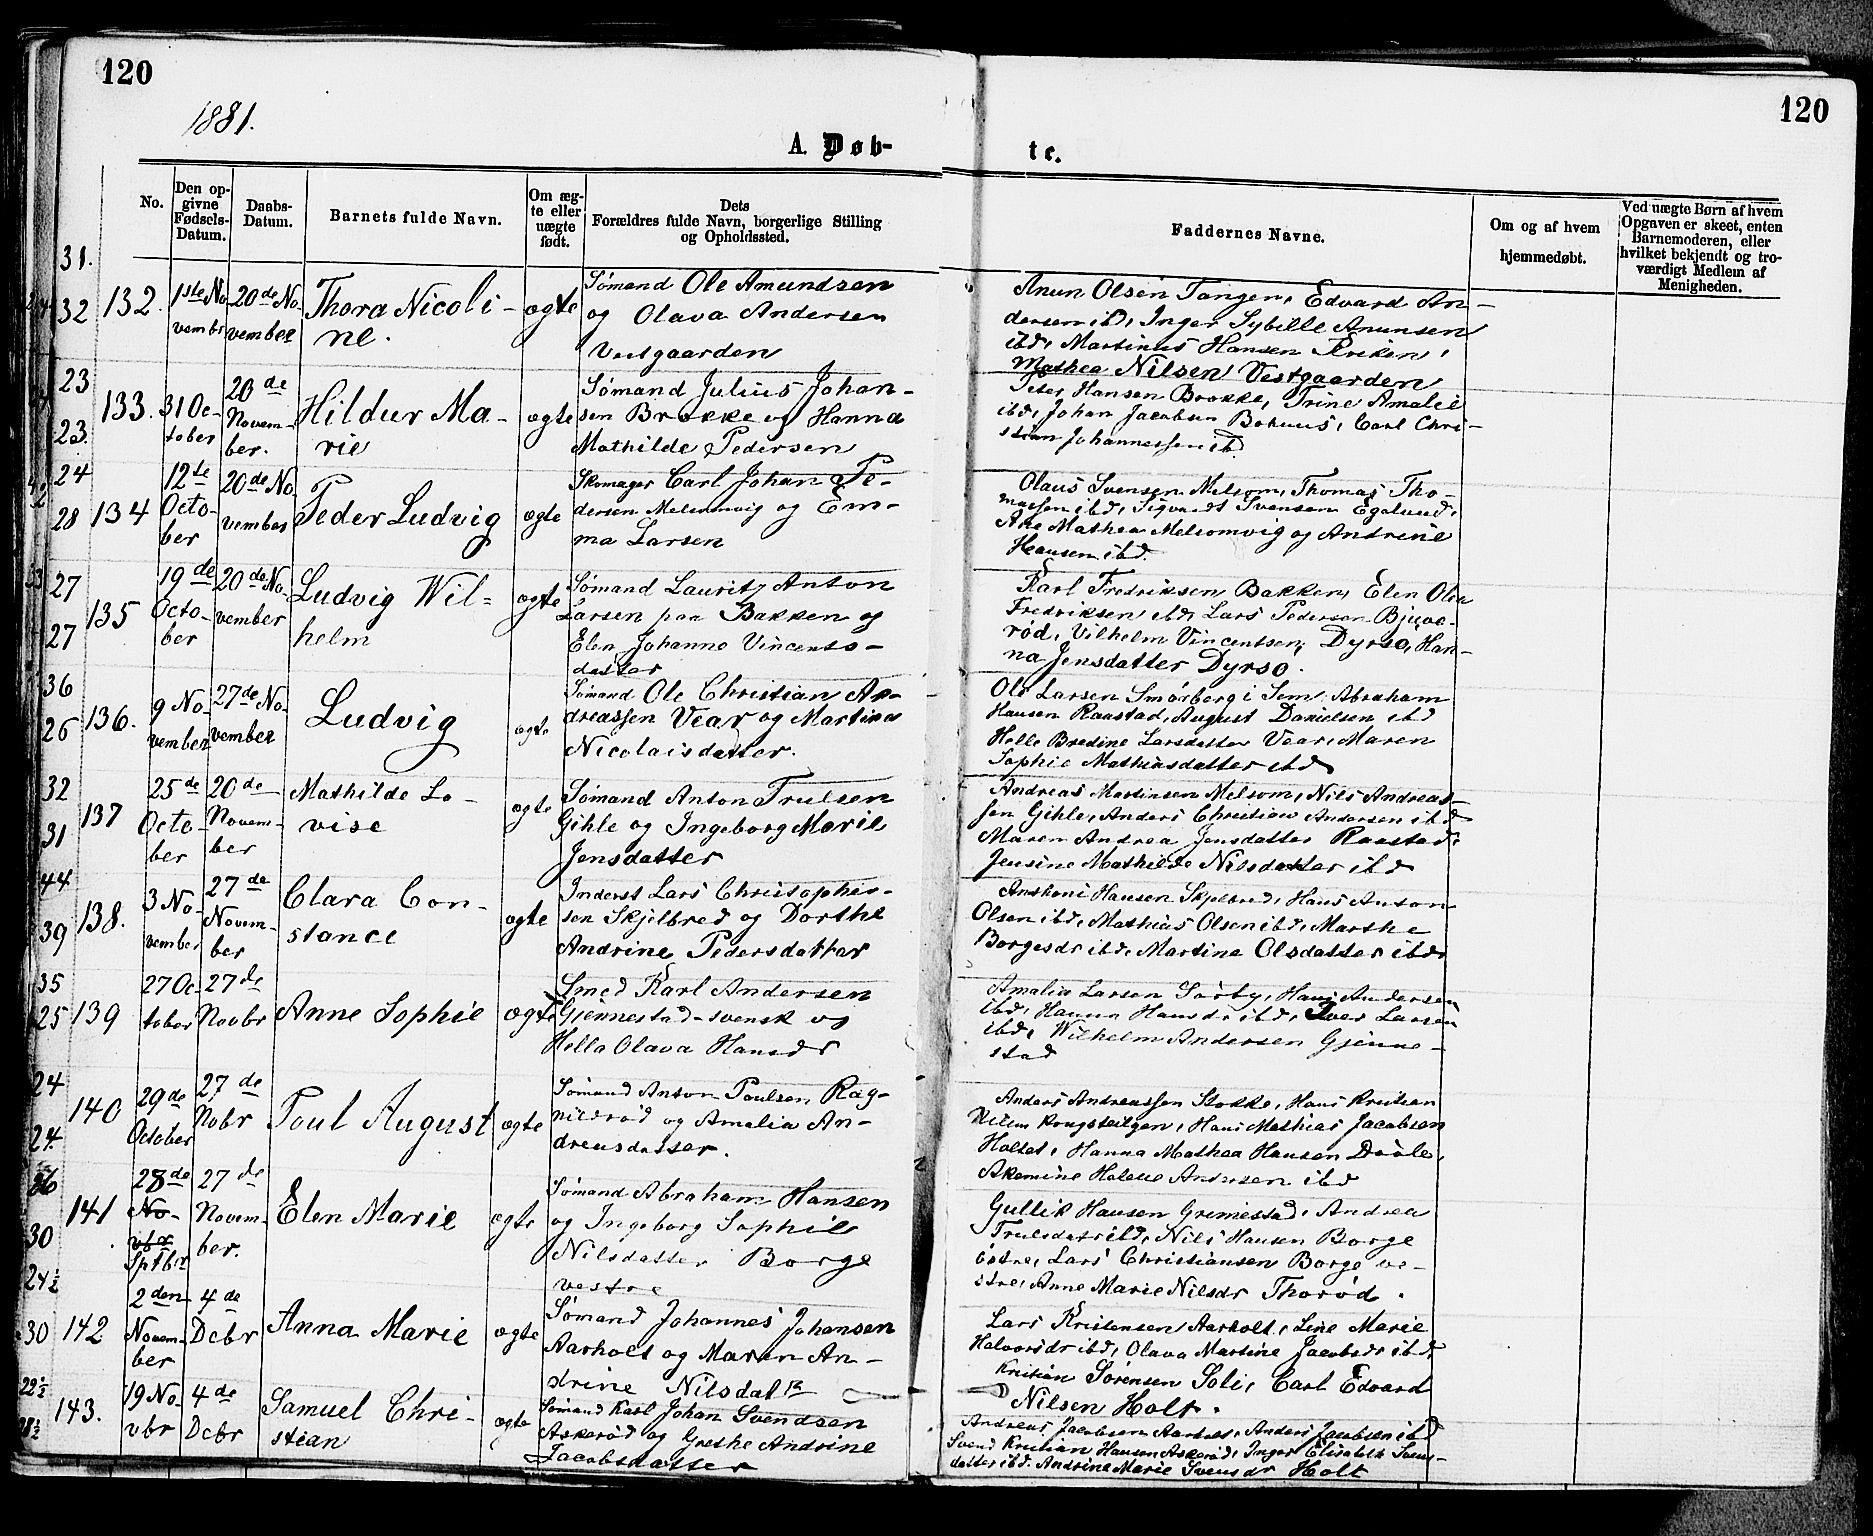 120
120
1881.
A. Døb-
te.
No.
Den op-
givne
Fødsels-
Datum.
Daabs-
Datum.
Barnets fulde Navn.
Om æg-
te eller
uægte
født.
Dets
Forældres fulde Navn, borgerlige Stilling
og Opholdssted.
Faddernes Navne.
Om og af hvem
hjemmedøbt.
Ved uægte Børn af hvem
Opgaven er skeet, enten
Barnemoderen, eller
hvilket bekjendt og tro-
værdigt Medlem af
Menigheden.
31.
32
132.
1ste No
vembr
20de No
vember
Thora Nicoli-
ne.
ægte
Sømand Ole Amundsen
og Olava Andersen
Vestgaarden
Anun Olsen Tangen, Edvard An-
dersen ibd, Inger Sybille Anunsen
ibd, Martinus Hansen
Mathea Nilsen Vestgaarden
23
23
133.
31 Oc-
tober
20de
Novem-
ber.
Hildur Ma-
rie
ægte
Sømand Julius Johan-
sen Brække og Hanna
Mathilde Pedersen
Peter Hansen Brække, Trine Amalie
ibd, Johan Jacobsen Bohuus, Carl Chri-
stian Johannessen ibd.
24
28
134
12te
Octo-
ber
20de No
vember
Peder Ludvig
ægte
Skomager Carl Johan Pe-
dersen Melsomvig og Em-
ma Larsen
Olaus Svensen Melsom, Thomas Tho-
massen ibd, Sigvardt Svensen
Ane Mathea Melsomvig og Andrine
Hansen ibd.
27
27
135
19de
Octo-
ber
20de No-
vember
Ludvig Wil-
helm
ægte
Sømand Lauritz Anton
Larsen paa Bakken og
Elen Johanne Vincents-
datter
Karl Fredriksen Bakken, Elen Olea
Fredriksen ibd, Lars Pedersen Bjuve-
rød, Vilhelm Vincentsen, Dyrsø, Han-
na Jensdatter Dyrsø.
36
26
136.
9 No-
vember
27de No-
vember
Ludvig
ægte
Sømand Ole Christian An-
dreassen Vear og Martine
Nicolaisdatter.
Ole Larsen Smørberg i Sem, Abraham
Hansen Raastad, August Danielsen ibd
Helle Bredine Larsdatter Vear, Maren
Sophie Mathiasdatter ibd
32
31
137
25de
Octo-
ber
20de
Novem-
ber
Mathilde Lo-
vise
ægte
Sømand Anton Trulsen
Gihle og Ingeborg Marie
Jensdatter
Andreas Martinsen Melsom, Nils Andreas-
sen Gihle, Anders Christian Andersen ibd
Maren Andrea Jensdatter Raastad,
Jensine Mathilde Nilsdatter ibd
44
39
138.
3 No-
vember
27de
Novem-
ber
Clara Con-
stance
ægte
Inderst Lars Christopher-
sen Skjelbred og Dorthe
Andrine Pedersdatter
Anthoni Hansen Skjelbred, Hans Anton
Olsen ibd, Mathias Olsen ibd, Marthe
Borgesdr ibd, Martine Olsdatter ibd
35
25
139
27 Oc-
tober
27de
Novbr
Anne Sophie
ægte
Smed Karl Andersen
Gjennestad svensk og
Hella Olava Hansdr
Amalia Larsen Sørby, Hans Andersen
ibd, Hanna Hansdr ibd, Iver Larsen
ibd, Wilhelm Andersen Gjenne-
stad
24
24
140
29de
October
27de
Nobr
Poul August
ægte
Sømand Anton Poulsen Rag-
nildrød og Amalia An-
dreasdatter.
Anders Andreassen Stokke, Hans Kristian
Hans Mathias Jacobsen
Holtet, Hanna Mathea Hansen Daale,
Akemine Helene Andersen ibd
26
30
141
28de
No-
vbr
Sptbr
27de
Novem-
ber.
Elen Marie
ægte
Sømand Abraham Hansen
og Ingeborg Sophie
Nilsdatter Borge
vestre
Gullik Hansen Grimestad, Andrea
Trulsdatr ibd, Nils Hansen Borge
østre, Lars Christiansen Borge ve-
stre, Anne Marie Nilsdr Thorød.
24½
30
142
2den
Novem-
ber
4de
Dcbr
Anna Marie
ægte
Sømand Johannes Johansen
Aarholt og Maren An-
drine Nilsdatr
Lars Kristensen Aarholt, Line Marie
Halvorsdr ibd, Olava Martine Jacobsdr ibd,
Kristian Sørensen Soli, Carl Edvard
Nilsen Holt.
22½
28½
143.
19 No-
vbr
4de
Dcbr
Samuel Chri-
stian
ægte
Sømand Karl Johan Svendsen
Askerød og Grethe Andrine
Jacobsdatter
Andreas Jacobsen Aarholt, Anders Jacobsen ibd
Svend Kristian Hansen Askerød, Inger Elisabeth Svens-
datter ibd. Andrine Marie Svensdr Holt